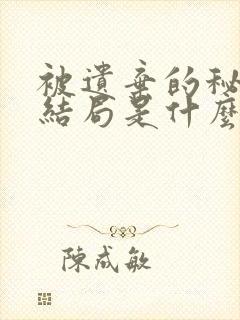 被遺棄的秘
結局是什麼
陳成敏